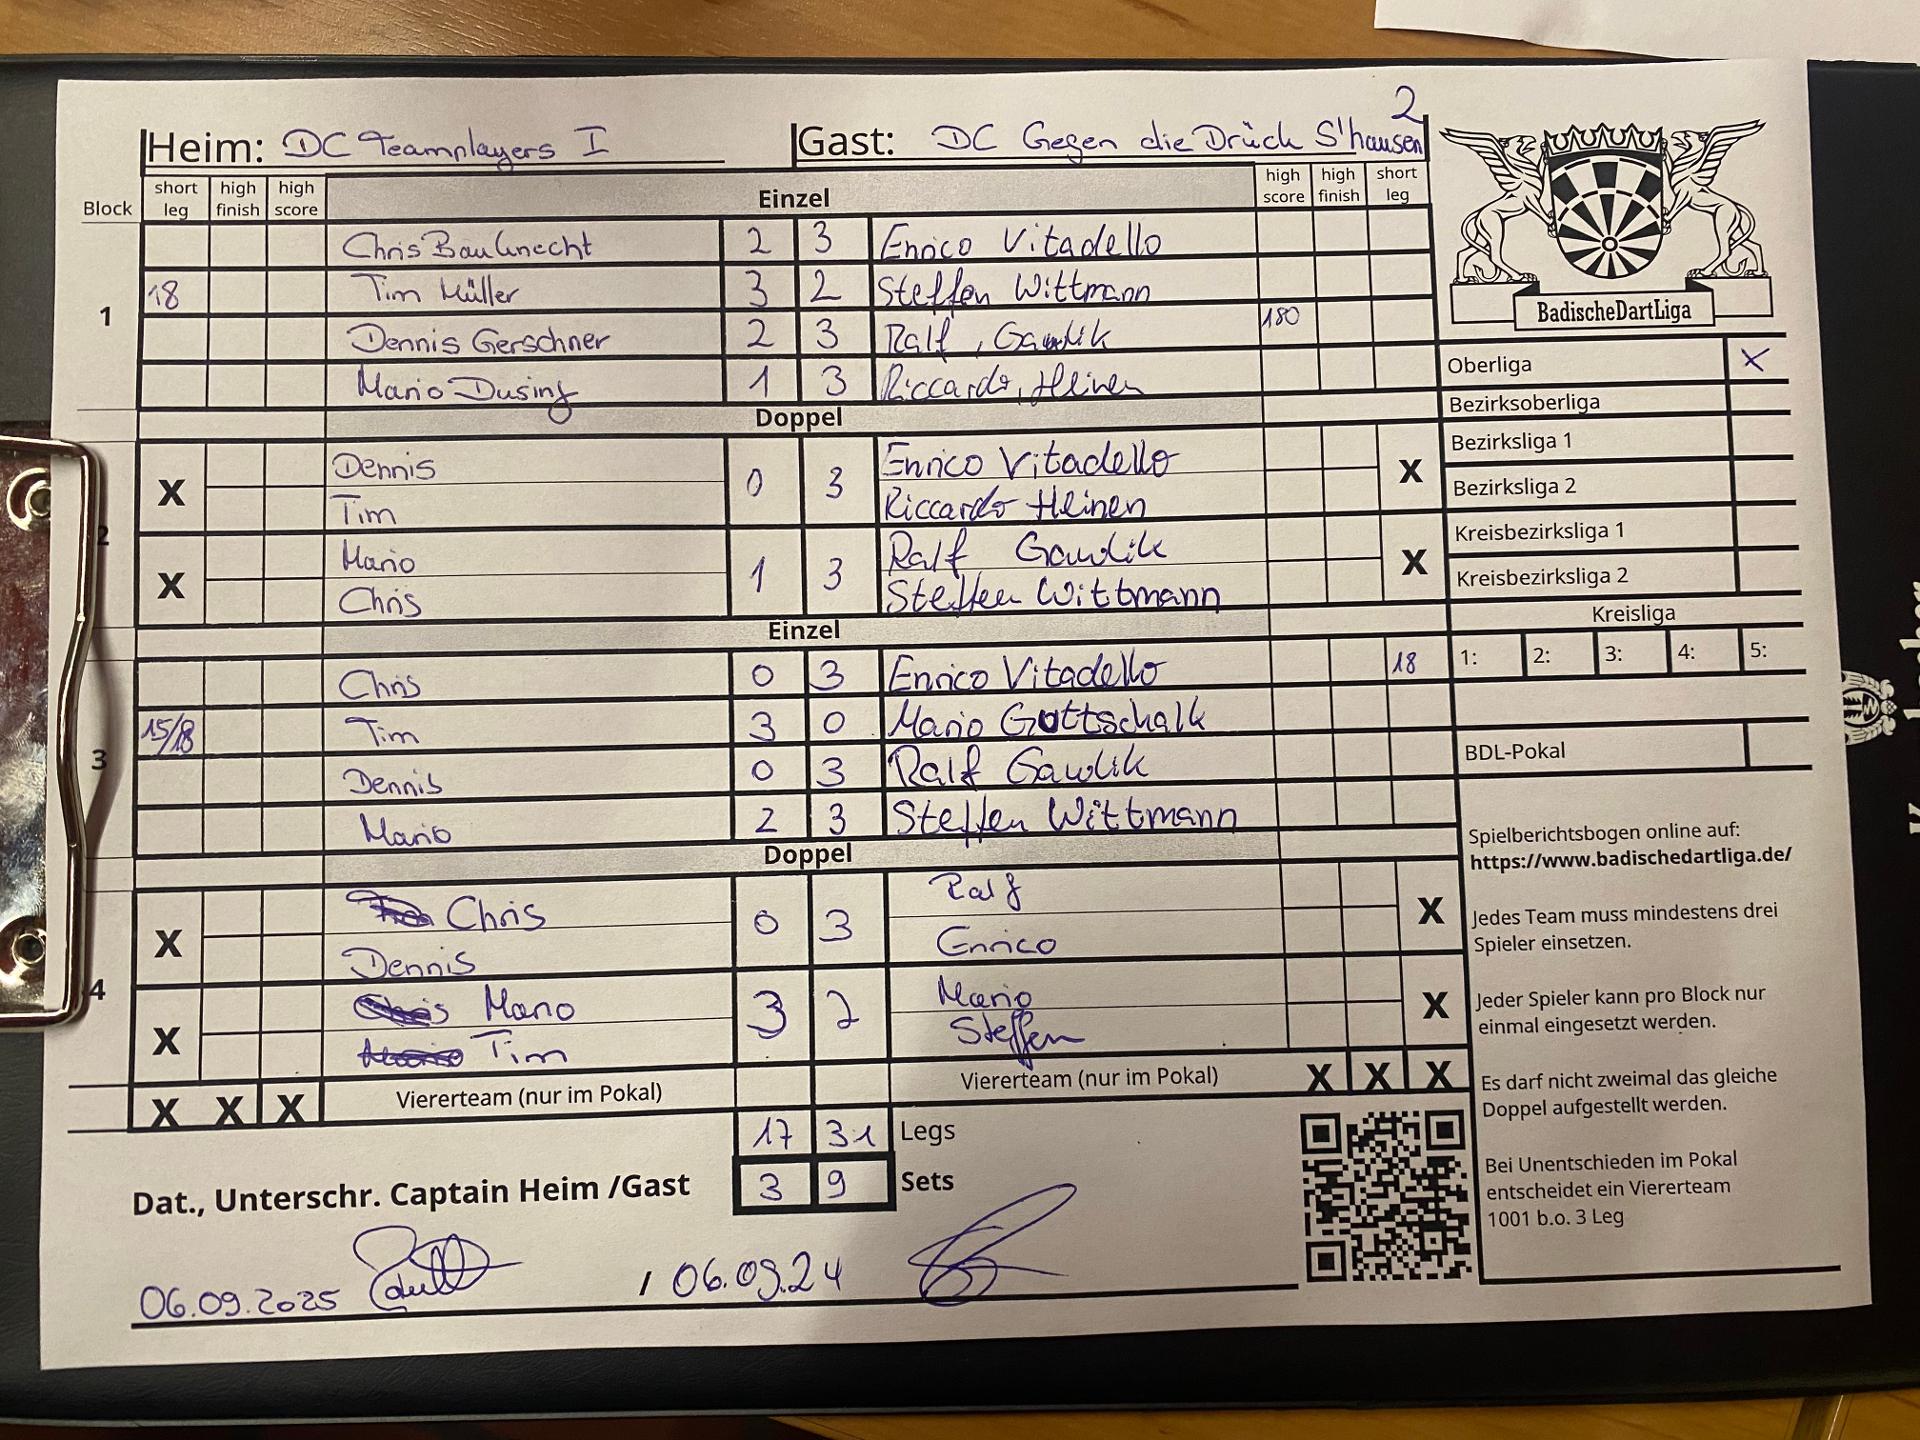 2
Heim: DC Teamplayers I Gast: DC Gegen die Drück S'hausen
Block short leg high finish high score Einzel high score high finish short leg
1
Chris Bauknecht 2 3 Enrico Vitadello
18 Tim Müller 3 2 Steffen Wittmann
Dennis Gerschner 2 3 Ralf, Gawlik 180
Mario Dusing 1 3 Riccardo, Heinen
Doppel
2
X Dennis 0 3 Enrico Vitadello X
Tim Riccardo Heinen
X Mario 1 3 Ralf Gawlik X
Chris Steffen Wittmann
Einzel
3
Chris 0 3 Enrico Vitadello 18
15/18 Tim 3 0 Mario Gottschalk
Dennis 0 3 Ralf Gawlik
Mario 2 3 Steffen Wittmann
Doppel
4
X Chris 0 3 Ralf X
Dennis Enrico
X Chris Mario 3 2 Mario X
Mario Tim Steffen
X X X Viererteam (nur im Pokal) Viererteam (nur im Pokal) X X X
17 31 Legs
Dat., Unterschr. Captain Heim /Gast 3 9 Sets
06.09.2025 / 06.09.24
BadischeDartLiga
Oberliga X
Bezirksoberliga
Bezirksliga 1
Bezirksliga 2
Kreisbezirksliga 1
Kreisbezirksliga 2
Kreisliga
1: 2: 3: 4: 5:
BDL-Pokal
Spielberichtsbogen online auf:
https://www.badischedartliga.de/
Jedes Team muss mindestens drei
Spieler einsetzen.
Jeder Spieler kann pro Block nur
einmal eingesetzt werden.
Es darf nicht zweimal das gleiche
Doppel aufgestellt werden.
Bei Unentschieden im Pokal
entscheidet ein Viererteam
1001 b.o. 3 Leg